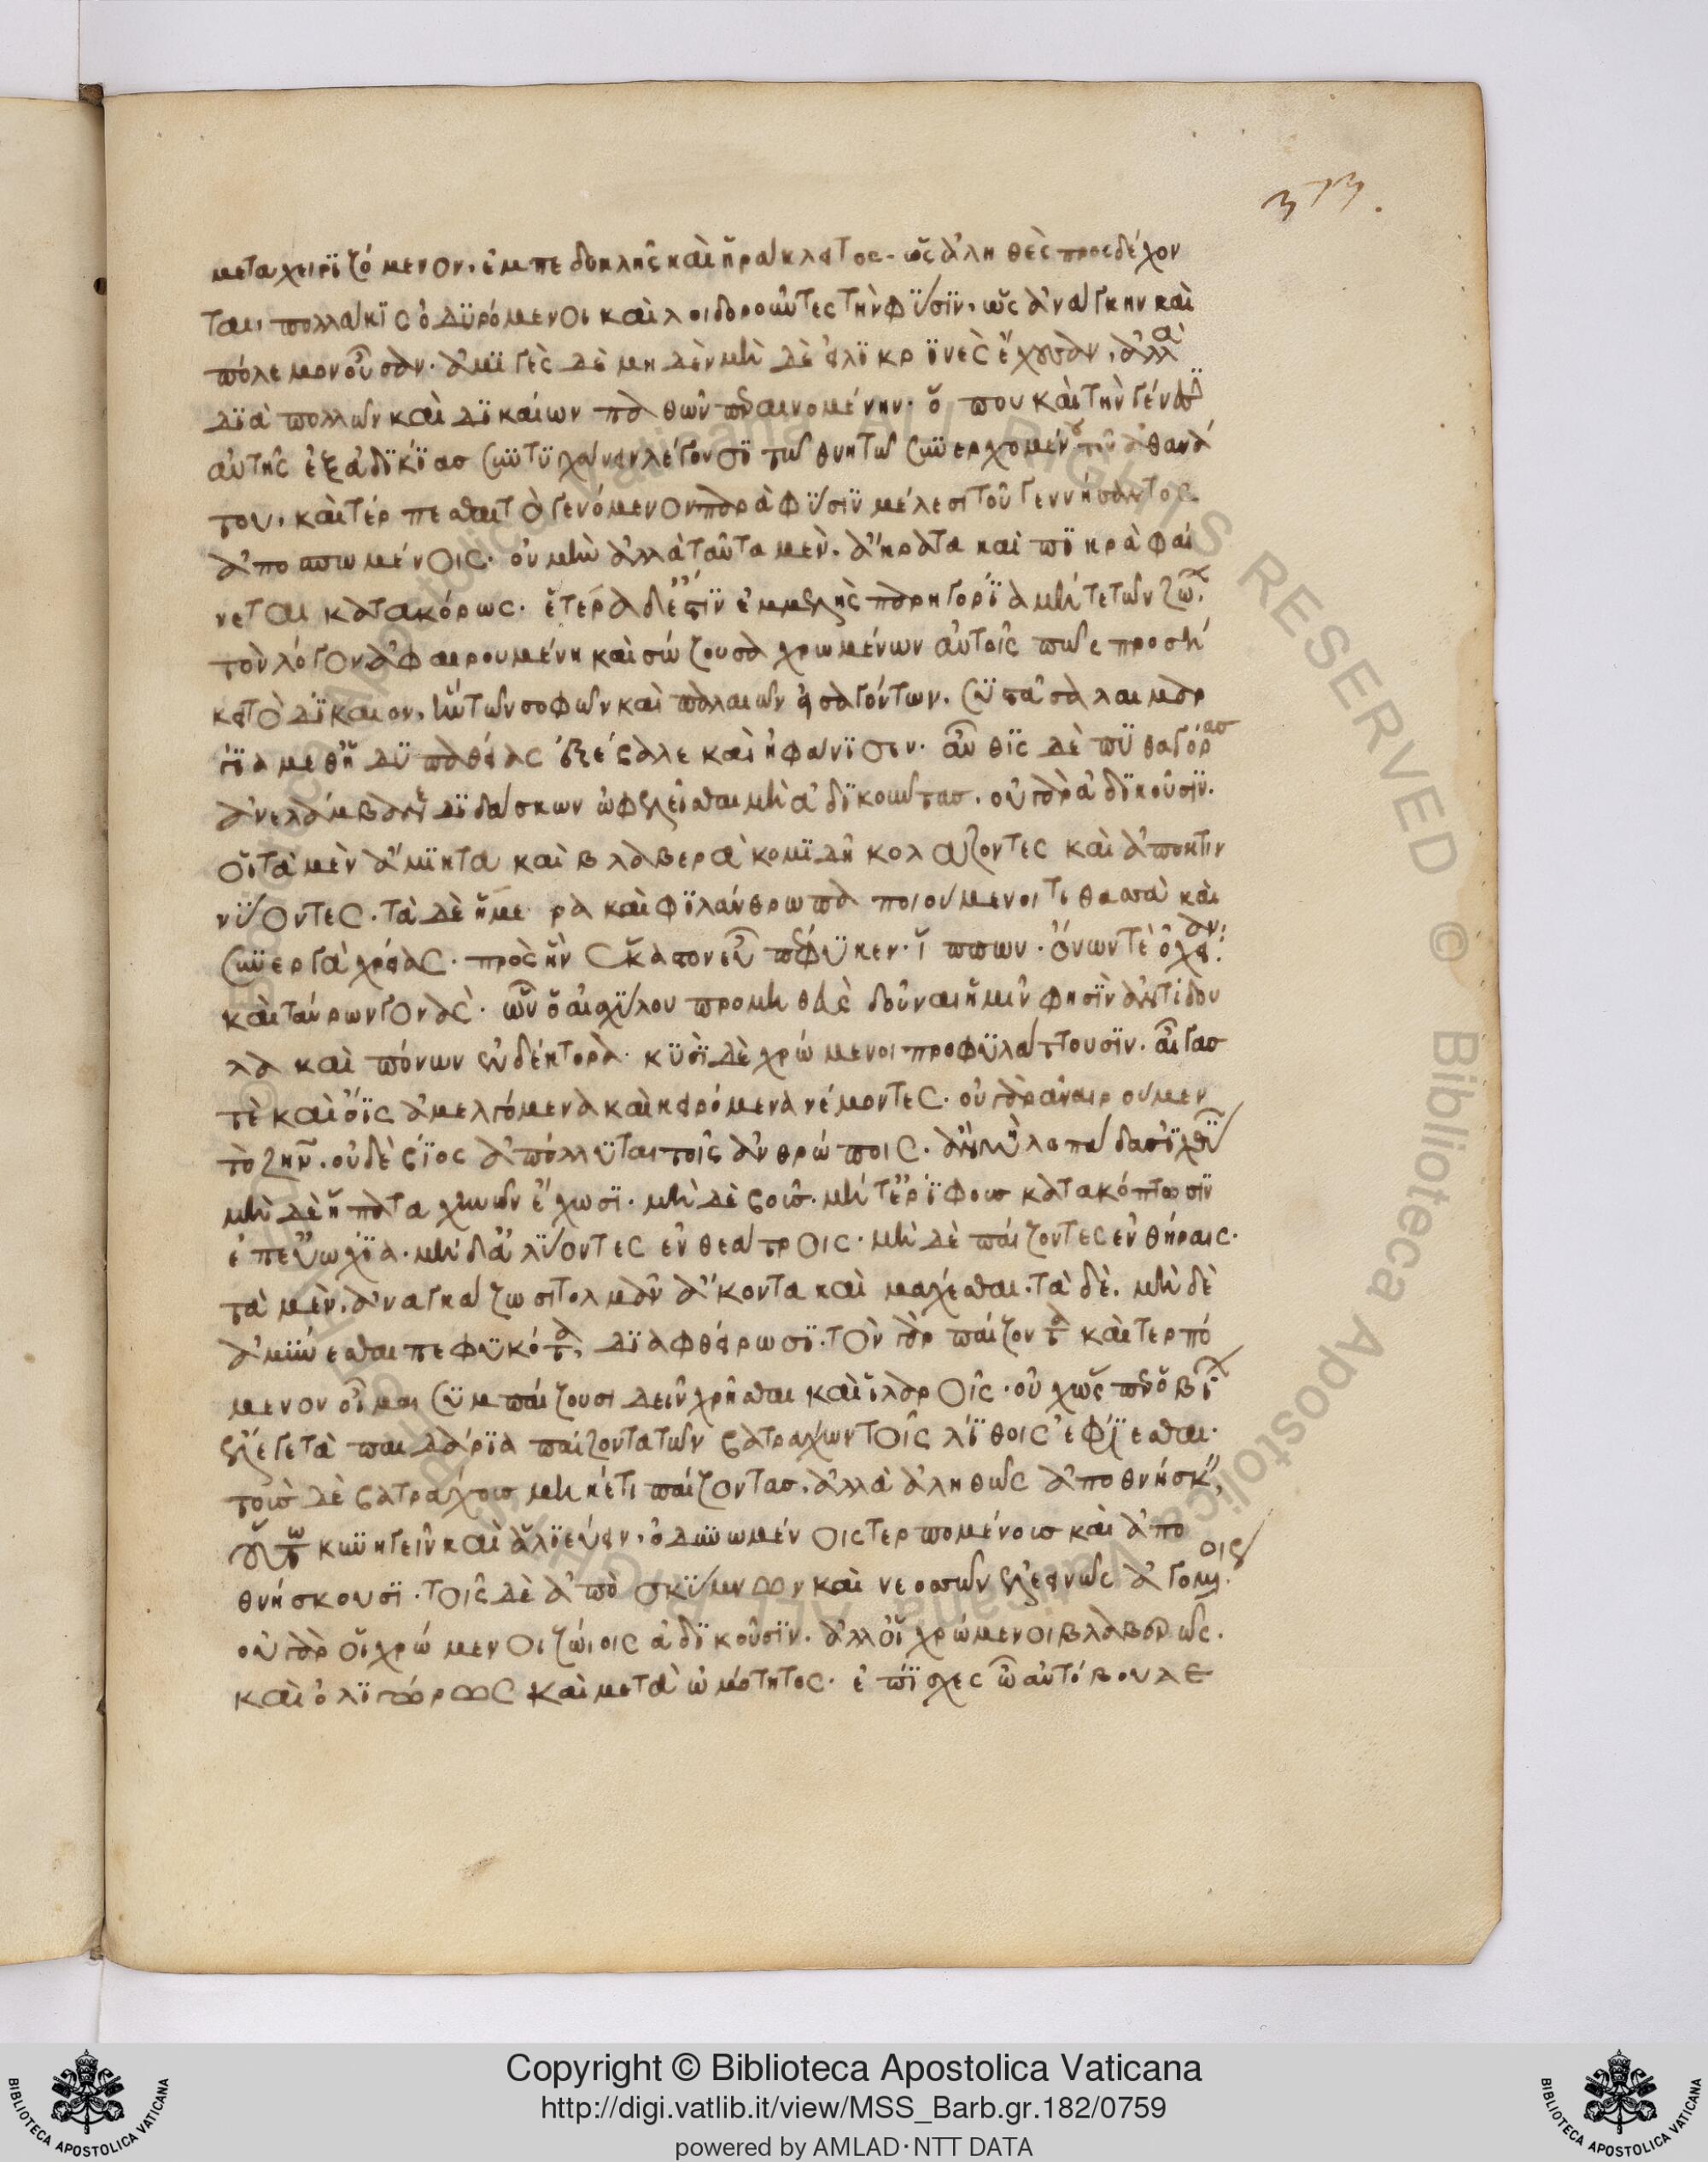 373.
μεταχειριζόμενον. ἐμπεδοκλῆς καὶ ἡράκλειτος ὡς ἀληθὲς προσδέχον
ται, πολλάκις ὀδυρόμενοι καὶ λοιδοροῦντες τὴν φύσιν, ὡς ἀνάγκην καὶ
πόλεμον οὖσαν. ἀμιγὲς δὲ μηδὲν μὴ δὲ εἰλικρινὲς ἔχουσαν, ἀλλὰ
διὰ πολλῶν καὶ δικαίων παθῶν περαινομένην. ὅπου καὶ τὴν γένεσιν
αὐτῆς ἐξ ἀδικίας συντυγχάνειν λέγουσι τῷ θνητῷ συνερχομένου τοῦ ἀθανά
του, καὶ τέρπεσθαι τὸ γενόμενον παρὰ φύσιν μέλεσι τοῦ γεννήσαντος
ἀποσπωμένοις. οὐ μὴν ἀλλὰ ταῦτα μὲν, ἄκρατα καὶ πικρὰ φαί
νεται κατακόρως. ἑτέρα δέ ἐστιν ἐμμελὴς παρηγορία μήτε τῶν ζώων
τὸν λόγον ἀφαιρουμένη καὶ σώζουσα χρωμένων αὐτοῖς πως προσή
κει τὸ δίκαιον, ἣν τῶν σοφῶν καὶ παλαιῶν εἰσαγόντων, συστᾶσα λαιμαρ
γία μεθ' ἡδυπαθείας ἐξέβαλε καὶ ἠφάνισεν. αὖθις δὲ πυθαγόρας
ἀνελάμβανε διδάσκων ὠφελεῖσθαι μὴ ἀδικοῦντας. οὐ γὰρ ἀδικοῦσιν.
οἱ τὰ μὲν ἄμικτα καὶ βλαβερὰ κομιδῆ κολάζοντες καὶ ἀποκτιν
νύοντες. τὰ δὲ ἥμερα καὶ φιλάνθρωπα ποιούμενοι τιθασσὰ καὶ
συνεργὰ χρείας. πρὸς ἣν ἕκαστον εὖ πέφυκεν. ἵππων. ὄνων τὲ ὀχείαν.
καὶ ταύρων γονὰς. ὧν ὁ αἰσχύλου προμηθεὺς δοῦναι ἡμῖν φησὶν ἀντίδου
λα καὶ πόνων ἐνδέκτορα. κυσὶ δὲ χρώμενοι προφυλάττουσιν. αἶγας
τὲ καὶ ὄϊς ἀμελγόμενα καὶ κειρόμενα νέμοντες. οὐ γὰρ ἀναιρούμεν
τὸ ζῆν. οὐδὲ βίος ἀπόλλυται τοῖς ἀνθρώποις. ἂν μὴ λοπάδας ἰχθύων
μὴ δὲ ἥπατα χηνῶν ἔχωσι. μὴ δὲ βοῦς. μήτ' ἐρίφους κατακόπτωσιν
ἐπ' εὐωχία. μὴ δ' ἀλύοντες ἐν θεάτροις. μὴ δὲ παίζοντες ἐν θήραις.
τὰ μὲν. ἀναγκάζωσι τολμᾶν ἄκοντα καὶ μάχεσθαι. τὰ δὲ. μὴ δὲ
ἀμύνεσθαι πεφυκότα, διαφθείρωσι. τὸν γὰρ παίζοντα καὶ τερπό
μενον οἶμαι συμπαίζουσι δεῖν χρῆσθαι καὶ ἱλαροῖς. οὐχ ὥσπερ ὁ βίων
ἔλεγε τὰ παιδάρια παίζοντα τῶν βατράχων τοῖς λίθοις ἐφίεσθαι.
τοὺς δὲ βατράχους μηκέτι παίζοντας, ἀλλὰ ἀληθῶς ἀποθνήσκειν,
οὕτω κυνηγεῖν καὶ ἁλιεύειν, ὀδυνωμένοις τερπομένους καὶ ἀπο
θνήσκουσι. τοῖς δὲ ἀπὸ σκύμνων καὶ νεοσσῶν ἐλεεινῶς ἀγομένοις.
οὐ γὰρ οἱ χρώμενοι ζώιοις ἀδικοῦσιν. ἀλλ' οἱ χρώμενοι βλαβερῶς.
καὶ ὀλιγώρως καὶ μετὰ ὠμότητος. ἐπίσχες ὦ αὐτόβουλε
Copyright © Biblioteca Apostolica Vaticana
http://digi.vatlib.it/view/MSS_Barb.gr.182/0759
powered by AMLAD·NTT DATA